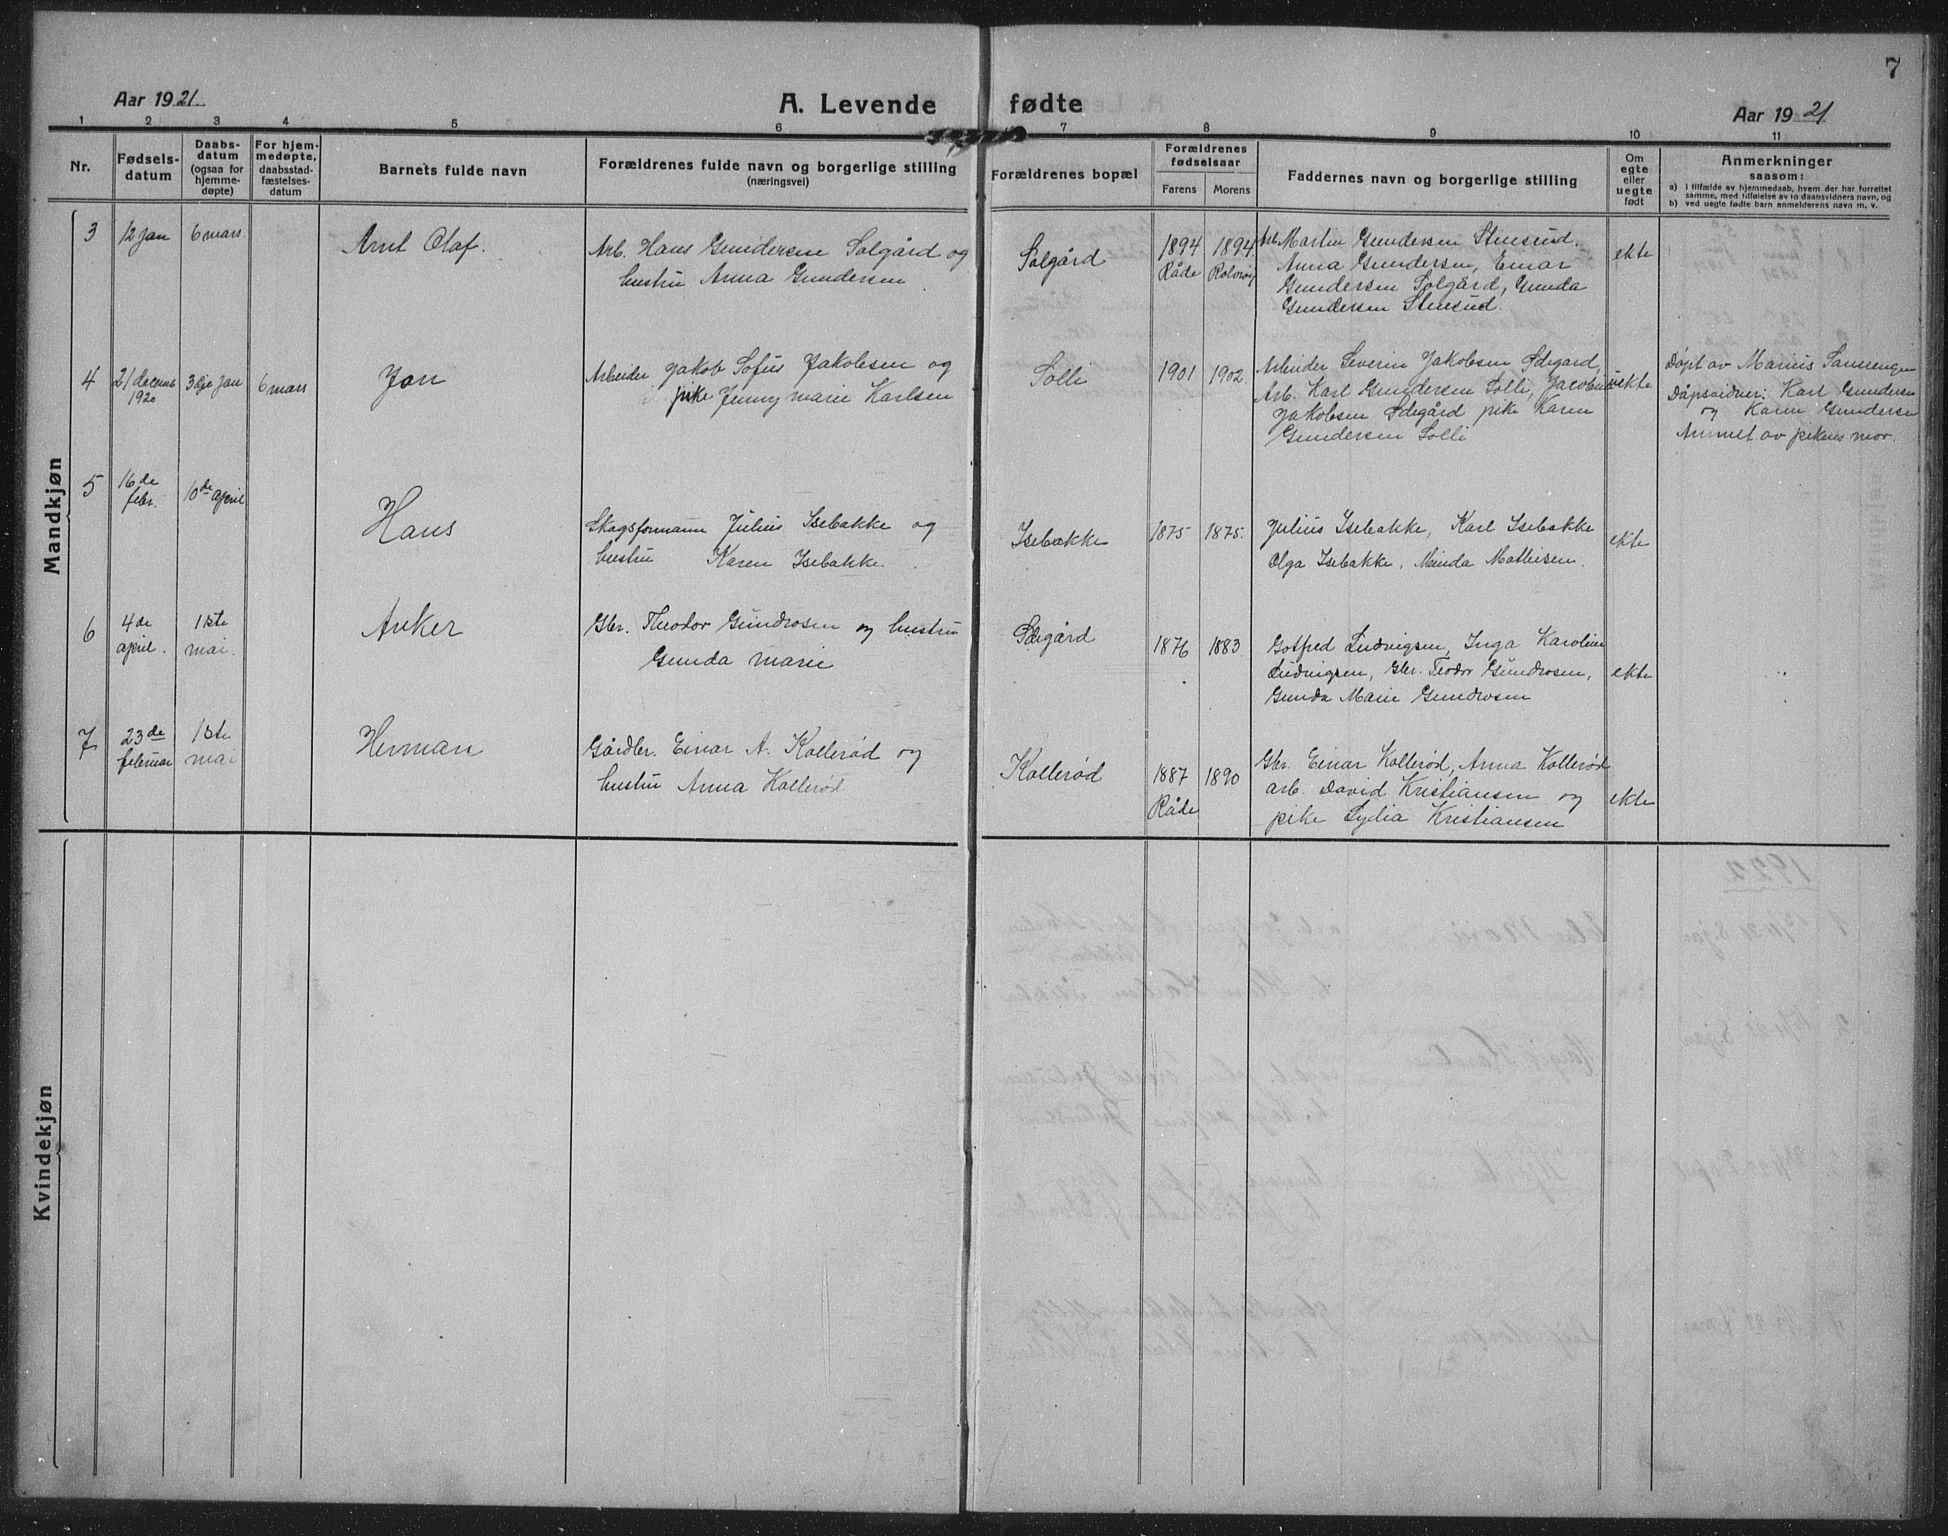 7
Aar 1921
A. Levende fødte
Aar 1921
1 2 3 4 5 6 7 8 9 10 11
Nr.
Fødsels-
datum
Daabs-
datum
(ogsaa for
hjemme-
døpte)
For hjem-
medøpte,
daabsstad-
fæstelses-
datum
Barnets fulde navn
Forældrenes fulde navn og borgerlige stilling
(næringsvei)
Forældrenes bopæl
Forældrenes
fødselsaar
Farens Morens
Faddernes navn og borgerlige stilling
Om
egte
eller
uegte
født
Anmerkninger
saasom:
a) i tilfælde av hjemmedaab, hvem der har forrettet
samme, med tilføielse av to daabsvidners navn, og
b) ved uegte fødte barn anmelderens navn m. v.
Mandkjøn
3
12 jan
6 mars
Arnt Olaf.
Arb. Hans Gundersen Solgård og
hustru Anna Gundersen
Solgård
1894
Råde
1894
Rolvsøy
Arb. Martin Gundersen Stensrud.
Anna Gundersen, Einar
Gundersen Solgård, Gunda
Gundersen Stensrud.
ekte
4
21 decemb
1920
3dje jan
6 mars
Jon
Arbeider Jakob Sofus Jakobsen og
pike Jenny Marie Karlsen
Solli
1901
1902
Arbeider Severin Jakobsen Ødegård,
Arb. Karl Gundersen Solli,
Jakobsen Ødegård pike Karen
Gundersen Solli
uekte
Døpt av Marius
Dåpsvidner: Karl Gundersen
og Karen Gundersen
Anmelt av pikens mor.
5
16de
febr.
10de april
Hans
Skogsformann Julius Isebakke og
hustru Karen Isebakke
Isebakke
1875
1875.
Julius Isebakke, Karl Isebakke
Olga Isebakke, Minda Mathisen.
ekte
6
4de
april.
1ste
mai.
Anker
Gbr. Theodor Gundrosen og hustru
Gunda Marie
Ødegård
1876
1883
Gotfred Ludvigsen, Inga Karoline
Ludvigsen, Gbr. Teodor Gundrosen,
Gunda Marie Gundrosen
ekte
7
23de
februar
1ste
mai
Herman
Gårdbr. Einar A. Kollerød og
hustru Anna Kollerød
Kollerød
1887
Råde
1890
Gbr. Einar Kollerød, Anna Kollerød
arb. David Kristiansen og
pike Lydia Kristiansen
ekte
Kvindekjøn